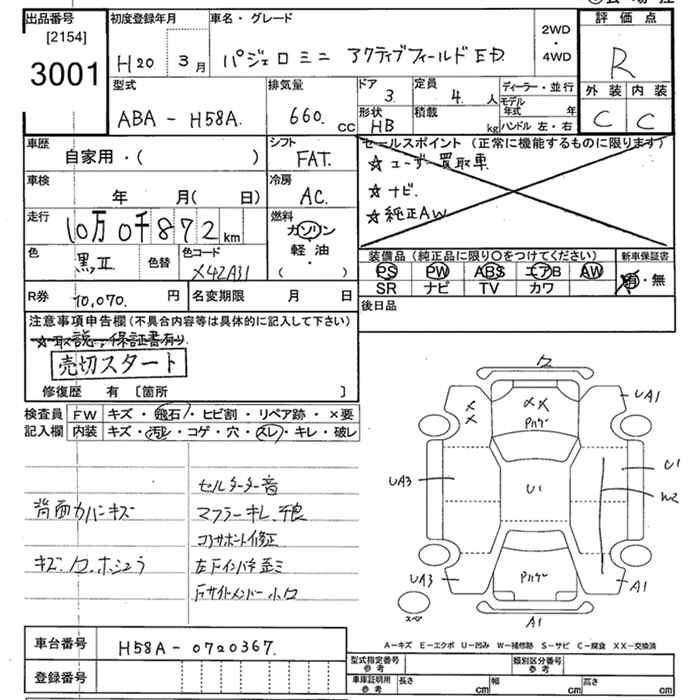 出品番号
[2154]
3001
初度登録年月
H20 3月
車名・グレード
パジェロミニ アクティブフィールドED
2WD
・
4WD
評価点
R
外装 内装
C C
型式
ABA-H58A.
排気量
660. CC
ドア
3.
定員
4. 人
形状
HB
積載
kg
ディーラー・並行
モデル年式 年
ハンドル 左・右
車歴
自家用・( )
シフト
FAT.
セールスポイント (正常に機能するものに限ります)
☆ユーザー買取車
☆ナビ.
☆純正AW
車検
年 月( 日)
冷房
AC.
走行
10万0千872 km
燃料
ガソリン
軽油
( ・ )
色
黒II
色替
色コード
X42A31
装備品 (純正品に限り○をつけてください)
PS PW ABS エアB AW
SR ナビ TV カワ
新車保証書
有・無
R券 10,070. 円
名変期限 月 日
後日品
注意事項申告欄 (不具合内容等は具体的に記入して下さい)
☆取説、保証書有り
売切スタート
修復歴 有 [箇所 ]
検査員記入欄
FW キズ・飛石・ヒビ割・リペア跡・×要
内装 キズ・汚レ・コゲ・穴・スレ・キレ・破レ
セルモーター音
背面カバーキズ
マフラーキレ、不良
コアサポート修正
左Fインパネ歪ミ
Fサイドメンバー小凹
ワ
UA1
×
×
××
Pハゲ
UA3
U1
U1
W2
UA3
Pハゲ
A1
スペア
A1
A-キズ E-エクボ U-凹み W-補修跡 S-サビ C-腐食 XX-交換済
車台番号
H58A-0720367.
登録番号
型式指定番号 参考
類別区分番号 参考
車庫証明用 参考
長さ cm 幅 cm 高さ cm